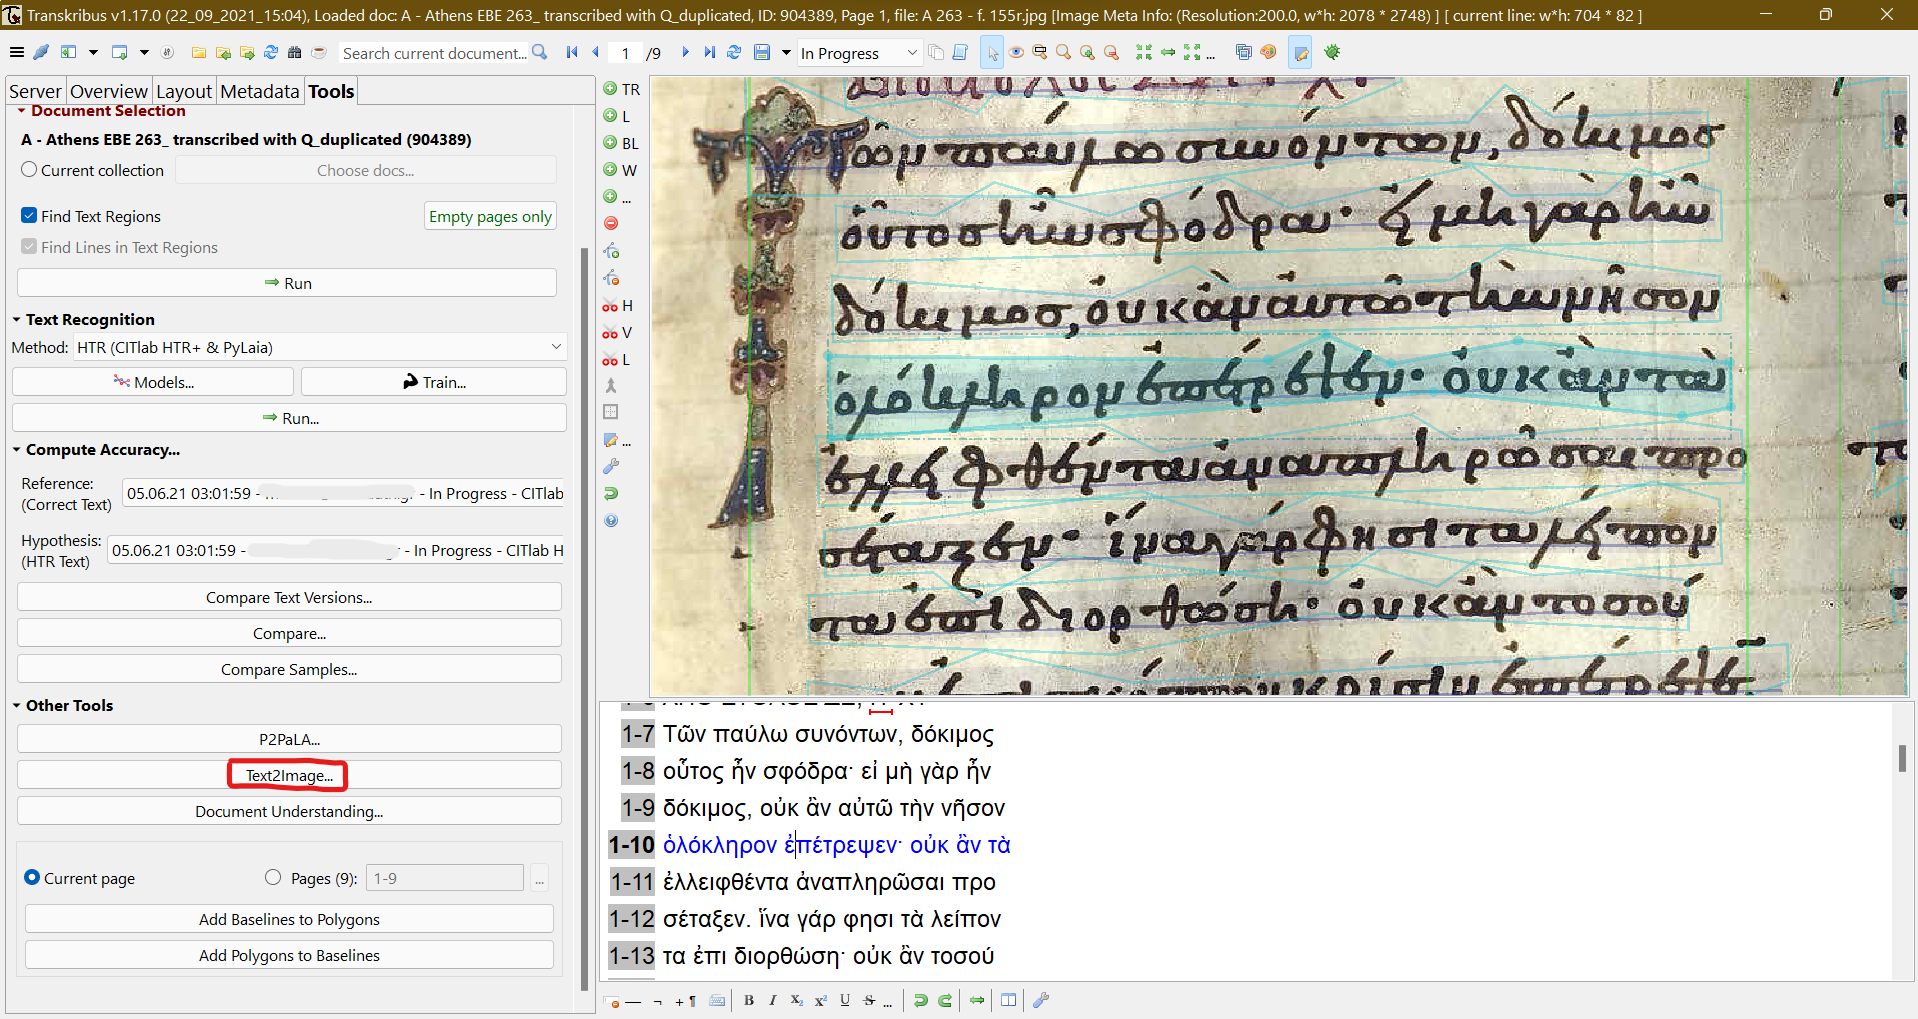 Transkribus v1.17.0 (22_09_2021_15:04), Loaded doc: A - Athens EBE 263_ transcribed with Q_duplicated, ID: 904389, Page 1, file: A 263 - f. 155r.jpg [Image Meta Info: (Resolution:200.0, w*h: 2078 * 2748) ] [ current line: w*h: 704 * 82 ]
Search current document... 1 /9 In Progress ...
Server Overview Layout Metadata Tools
Document Selection
A - Athens EBE 263_ transcribed with Q_duplicated (904389)
Current collection Choose docs...
Find Text Regions Empty pages only
Find Lines in Text Regions
Run
Text Recognition
Method: HTR (CITlab HTR+ & PyLaia)
Models... Train...
Run...
Compute Accuracy...
Reference:
(Correct Text) 05.06.21 03:01:59 - - In Progress - CITlab
Hypothesis:
(HTR Text) 05.06.21 03:01:59 - - In Progress - CITlab H
Compare Text Versions...
Compare...
Compare Samples...
Other Tools
P2PaLA...
Text2Image...
Document Understanding...
Current page Pages (9): 1-9 ...
Add Baselines to Polygons
Add Polygons to Baselines
TR
L
BL
W
...
H
V
L
...
Τῶν παύλω συνόντων, δόκιμος
οὗτος ἦν σφόδρα· εἰ μὴ γὰρ ἦν
δόκιμος, οὐκ ἂν αὐτῶ τὴν νῆσον
ὁλόκληρον ἐπέτρεψεν· οὐκ ἂν τὰ
ἐλλειφθέντα ἀναπληρῶσαι προ
σέταξεν· ἵνα γάρ φησι τὰ λείπον
τα ἐπι διορθώση· οὐκ ἂν τοσού
1-7 Τῶν παύλω συνόντων, δόκιμος
1-8 οὗτος ἦν σφόδρα· εἰ μὴ γὰρ ἦν
1-9 δόκιμος, οὐκ ἂν αὐτῶ τὴν νῆσον
1-10 ὁλόκληρον ἐπέτρεψεν· οὐκ ἂν τὰ
1-11 ἐλλειφθέντα ἀναπληρῶσαι προ
1-12 σέταξεν. ἵνα γάρ φησι τὰ λείπον
1-13 τα ἐπι διορθώση· οὐκ ἂν τοσού
B I X₂ X² U S ...